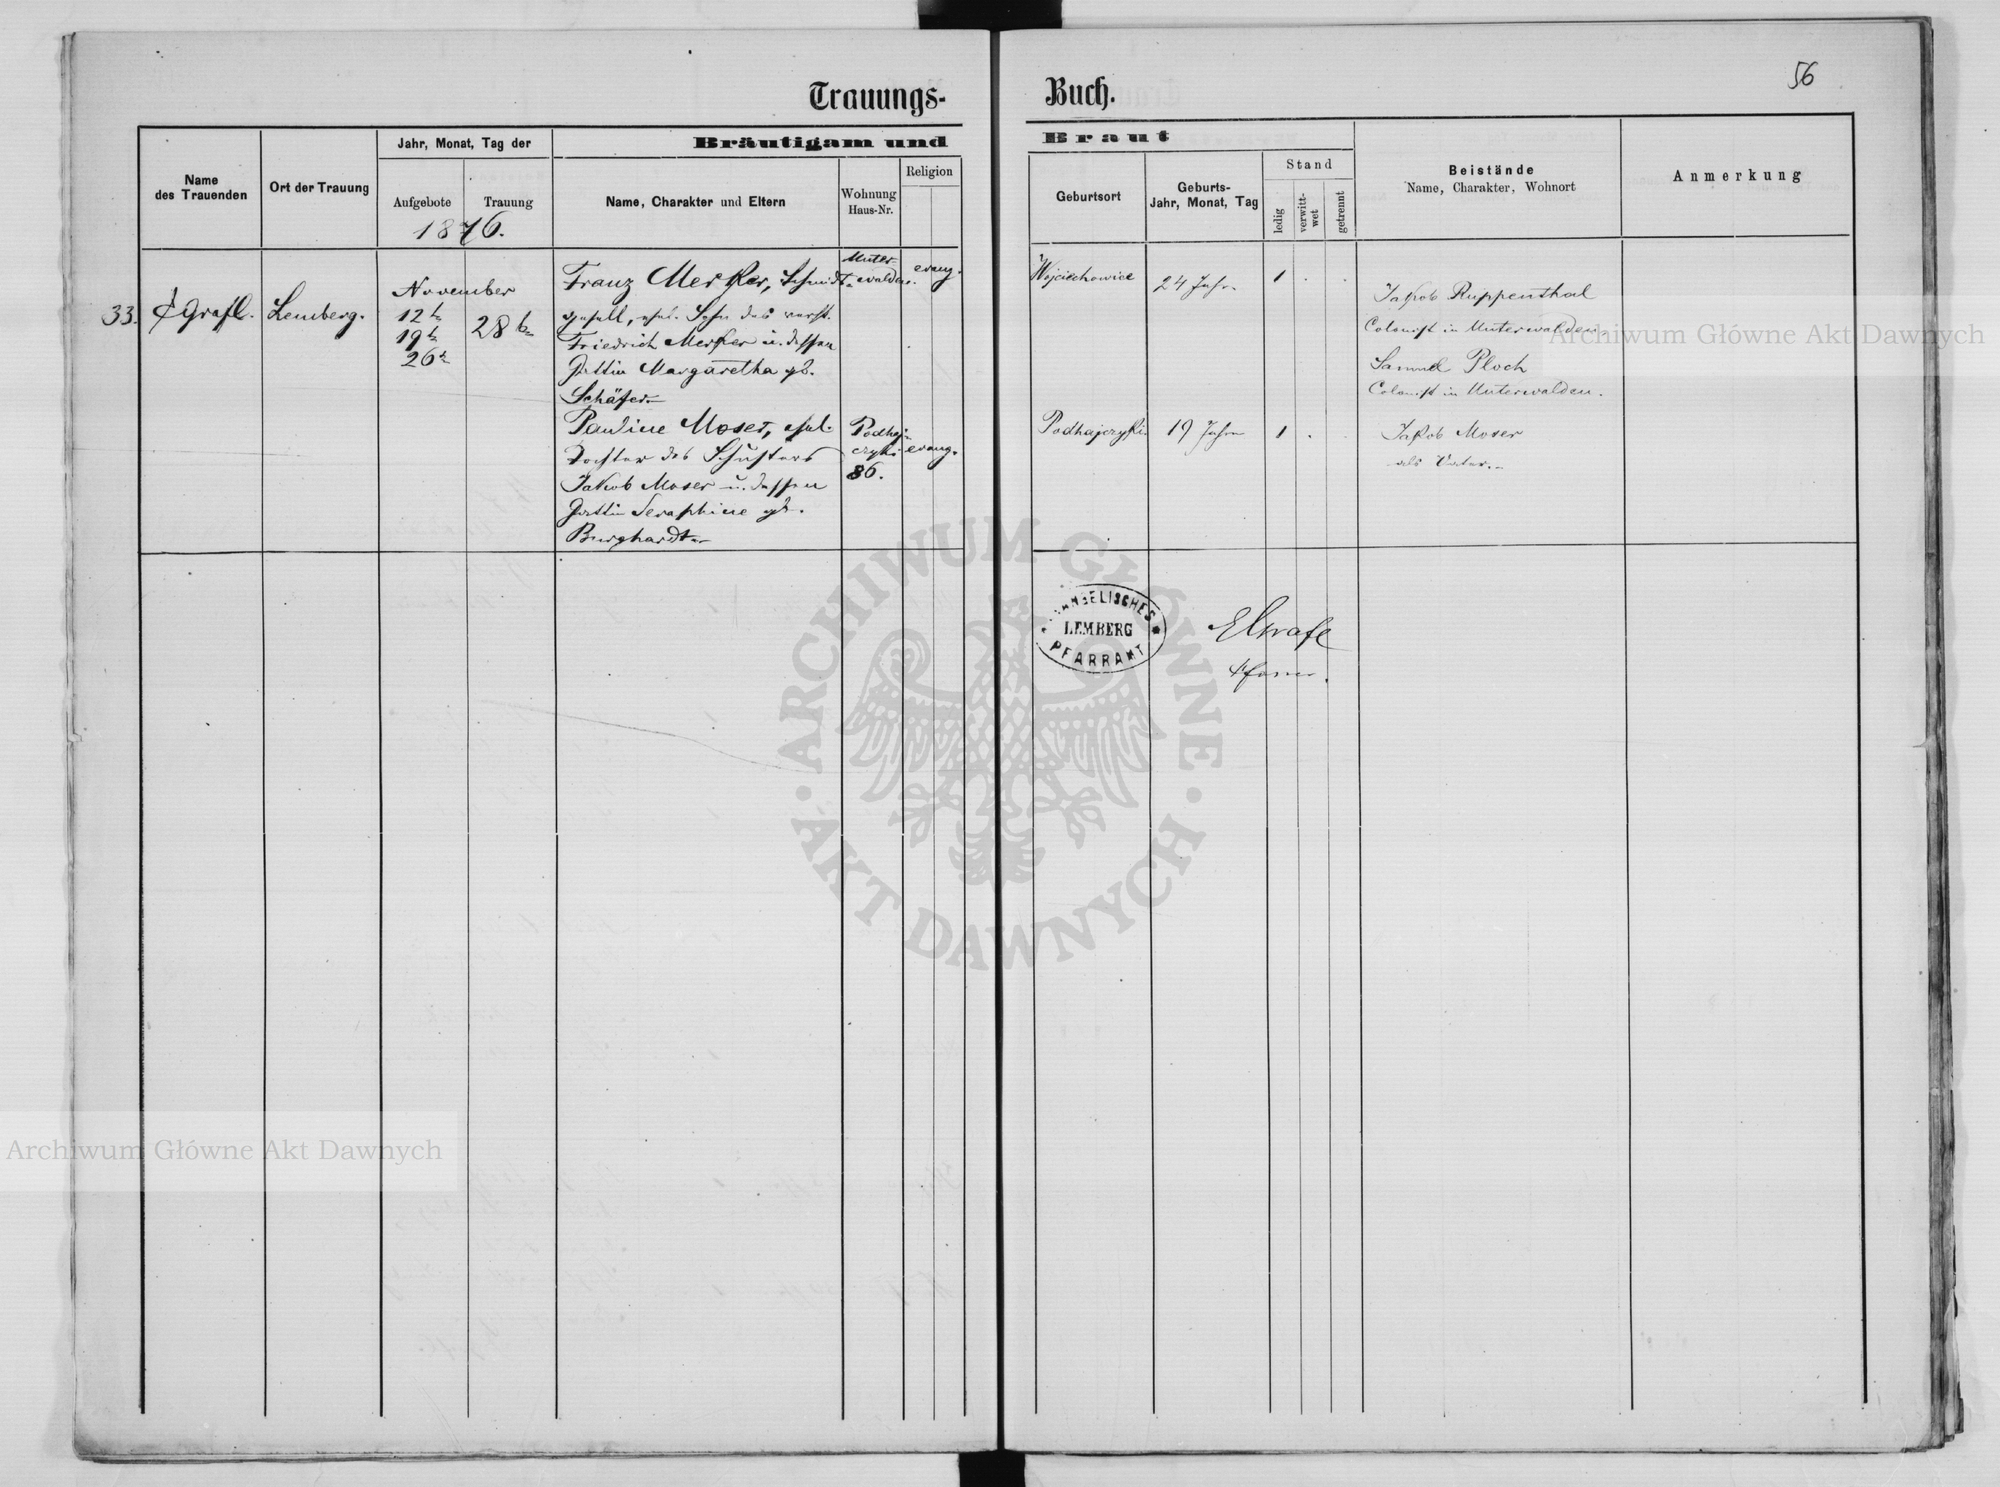 56
Trauungs-Buch.
Name
des Trauenden
Ort der Trauung
Jahr, Monat, Tag der
Aufgebote
Trauung
1876.
Bräutigam und
Braut
Name, Charakter und Eltern
Wohnung
Haus-Nr.
Religion
Geburtsort
Geburts-
Jahr, Monat, Tag
Stand
ledig
verwitt-
wet
getrennt
Beistände
Name, Charakter, Wohnort
Anmerkung
33.
Lemberg.
November
12t
19t
26t
28t
Franz Merker, Schmidt-
gesell, ehel. Sohn des verst.
Friedrich Merker u. dessen
Gattin Margaretha gb.
Schäfer
Unter-
walden.
evang.
Wojciechowice
24 Jahr.
1
Jakob Ruppenthal
Colonist in Unterwalden.
Samuel Ploch
Colonist in Unterwalden.
Pauline Moser, ehel.
Tochter des Schusters
Jakob Moser u. dessen
Gattin Seraphine gb.
Burghardt
Podhaj-
czyki
86.
evang.
Podhajczyki
19 Jahre
1
Jakob Moser
als Vater.
EVANGELISCHES
LEMBERG
PFARRAMT
EGrafl
Pfarrer.
ARCHIWUM GŁÓWNE AKT DAWNYCH
Archiwum Główne Akt Dawnych
Archiwum Główne Akt Dawnych